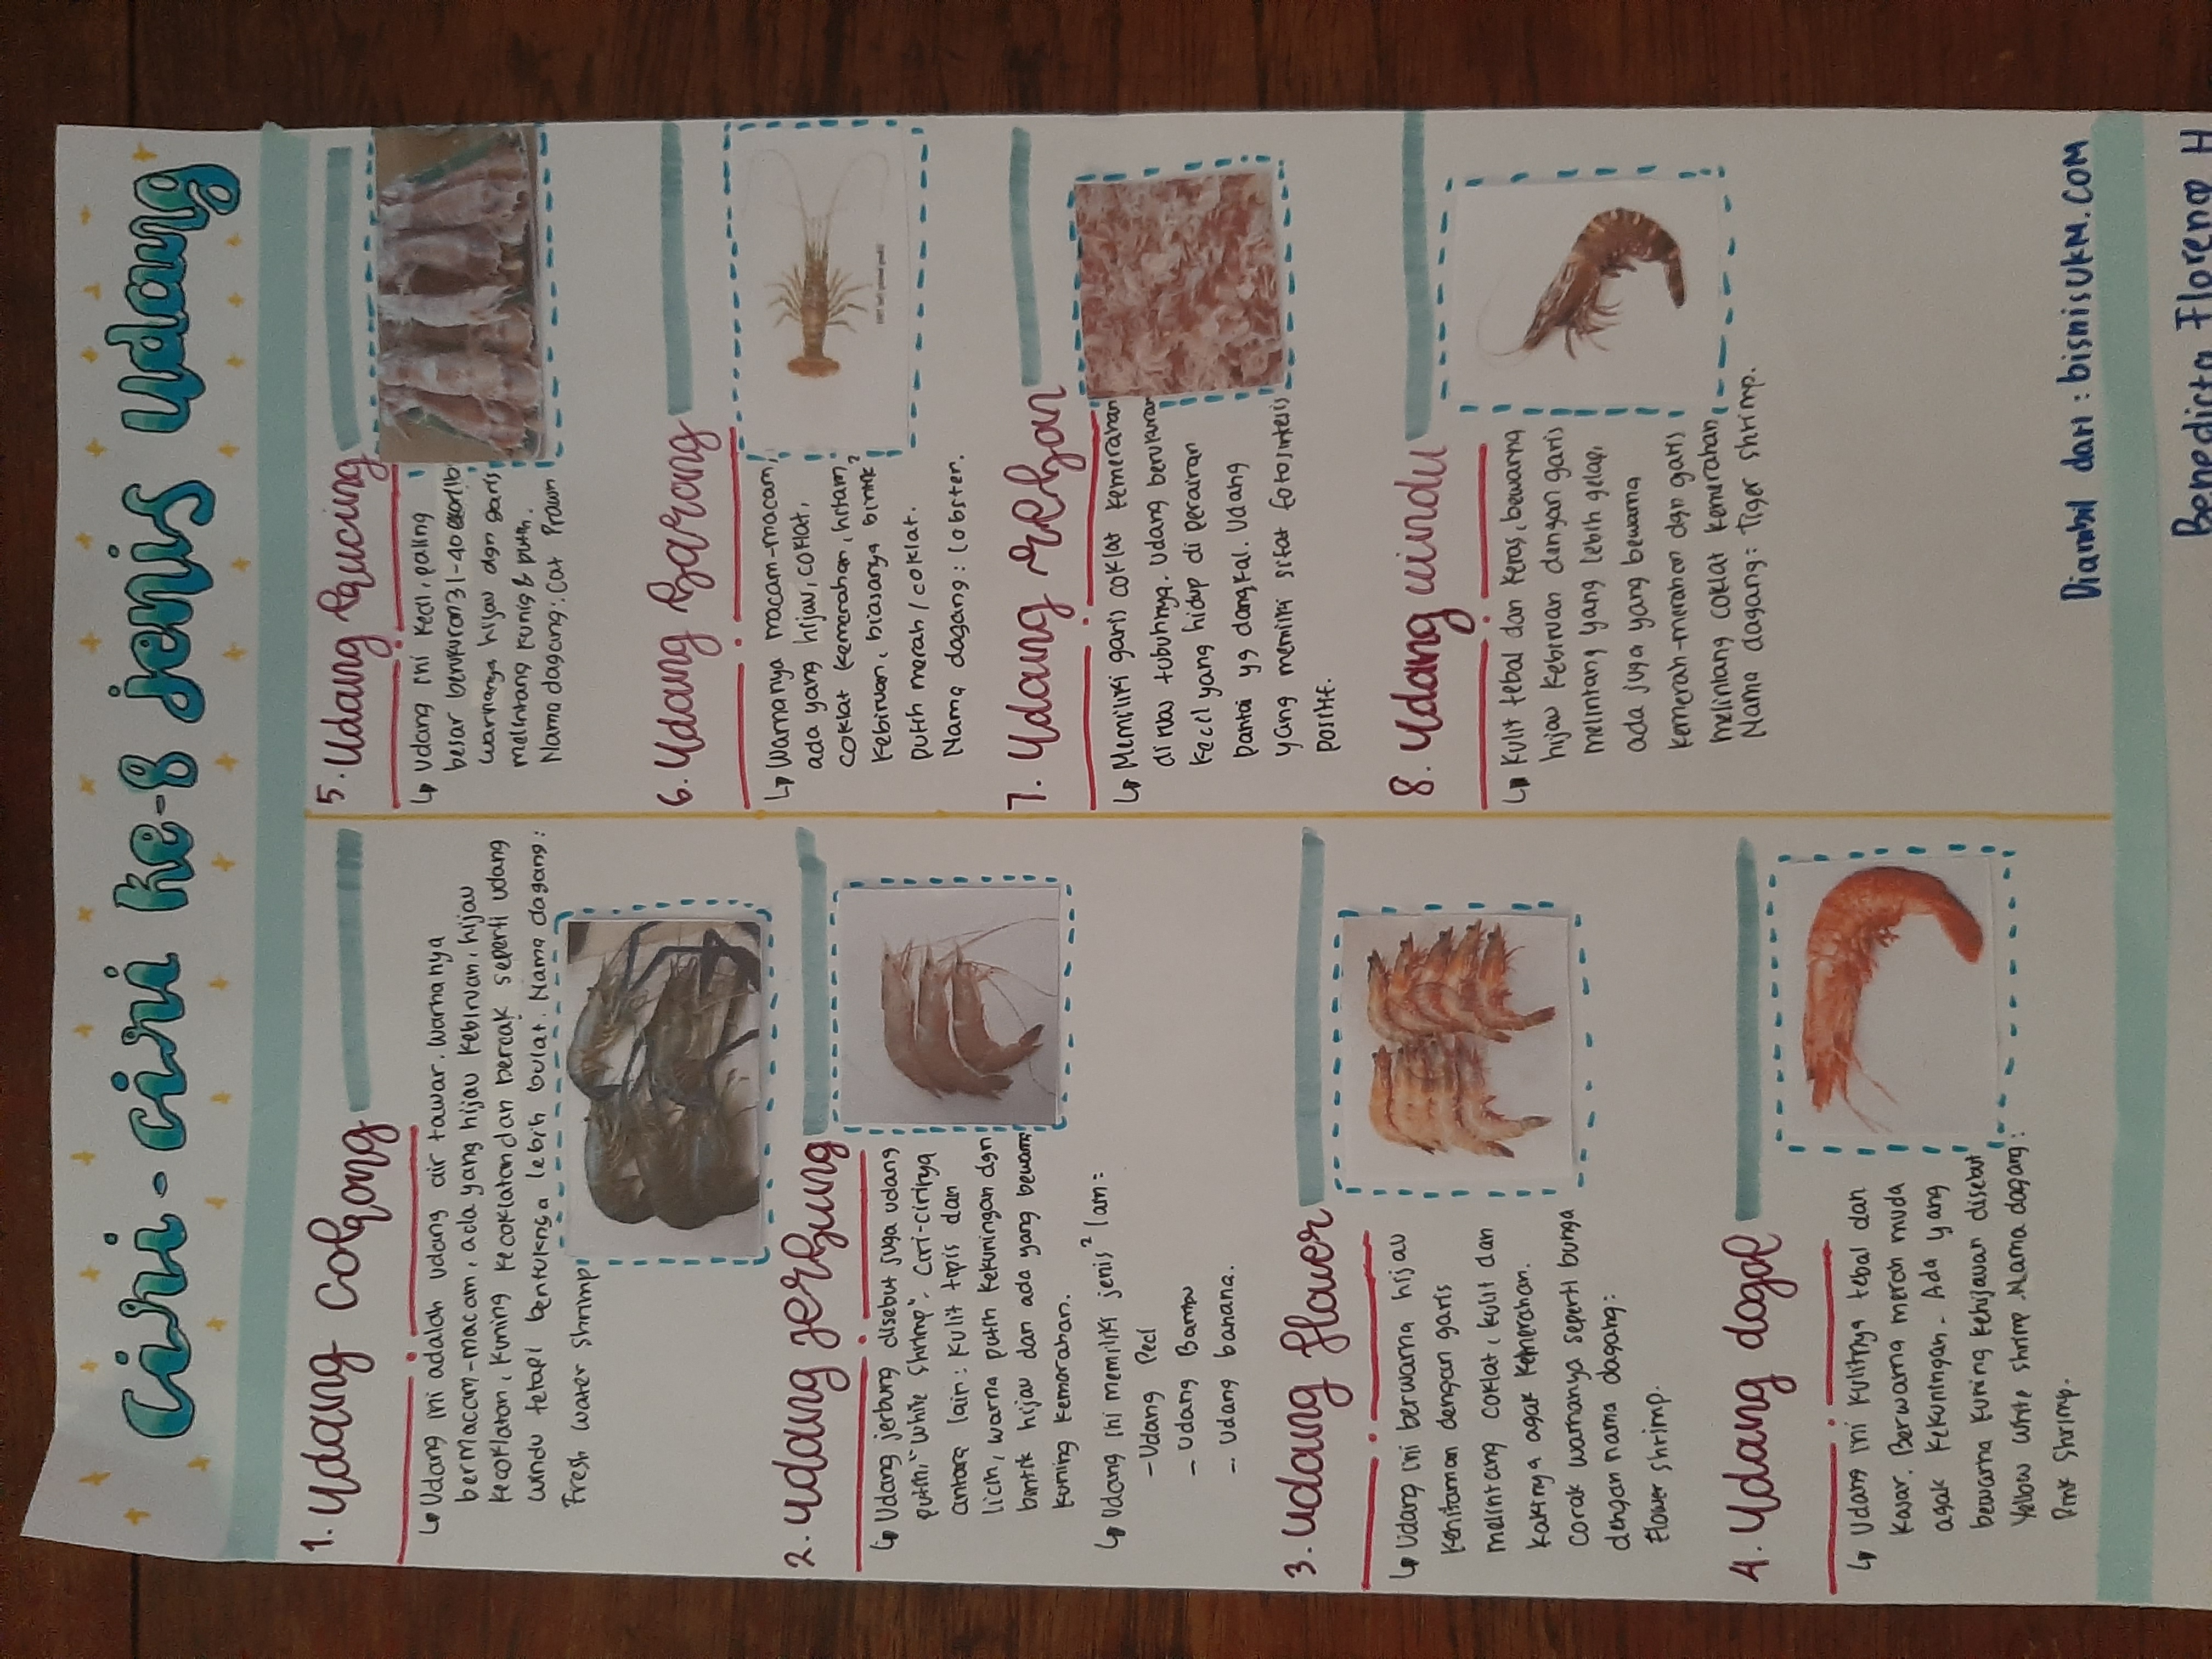 Ciri-ciri ke-8 jenis Udang
1. Udang Galgong
↳ Udang ini adalah udang air tawar. Warnanya
bermacam-macam, ada yang hijau kebiruan, hijau
kecoklatan, kuning kecoklatan dan bercak seperti udang
windu tetapi bentuknya lebih bulat. Nama dagang:
Fresh water Shrimp.
2. Udang jerbung
↳ Udang jerbung disebut juga udang
putih, "White Shrimp". Ciri-cirinya
antara lain: kulit tipis dan
licin, warna putih kekuningan dgn
bintik hijau dan ada yang bewarna
kuning kemerahan.
↳ Udang ini memiliki jenis² lain:
- Udang Peci
- Udang Bambu
- Udang banana.
3. Udang flower
↳ Udang ini berwarna hijau
kehitaman dengan garis
melintang coklat, kulit dan
kakinya agak kemerahan.
Corak warnanya seperti bunga
dengan nama dagang:
Flower shrimp.
4. Udang dogol
↳ Udang ini kulitnya tebal dan
kasar. Berwarna merah muda
agak kekuningan. Ada yang
bewarna kuning kehijauan disebut
Yellow white shrimp. Nama dagang:
Pink Shrimp.
5. Udang kucing
↳ Udang ini kecil, paling
besar berukuran 31-40 ekor/lb
warnanya hijau dgn garis
melintang kunig & putih.
Nama dagang: Cat Prawn
6. Udang Barong
↳ Warnanya macam-macam,
ada yang hijau, coklat,
coklat kemerahan, hitam
kebiruan, biasanya bintik²
putih merah / coklat.
Nama dagang: lobster.
7. Udang rebon
↳ Memiliki garis coklat kemerahan
di ruas tubuhnya. Udang berukuran
kecil yang hidup di perairan
pantai yg dangkal. Udang
yang memiliki sifat fotosintesis
positif.
8. Udang windu
↳ Kulit tebal dan keras, bewarna
hijau kebiruan dengan garis
melintang yang lebih gelap,
ada juga yang bewarna
kemerah-merahan dgn garis
melintang coklat kemerahan
Nama dagang: Tiger shrimp.
Diambil dari: bisnisUKM.COM
Benedicta Florena H